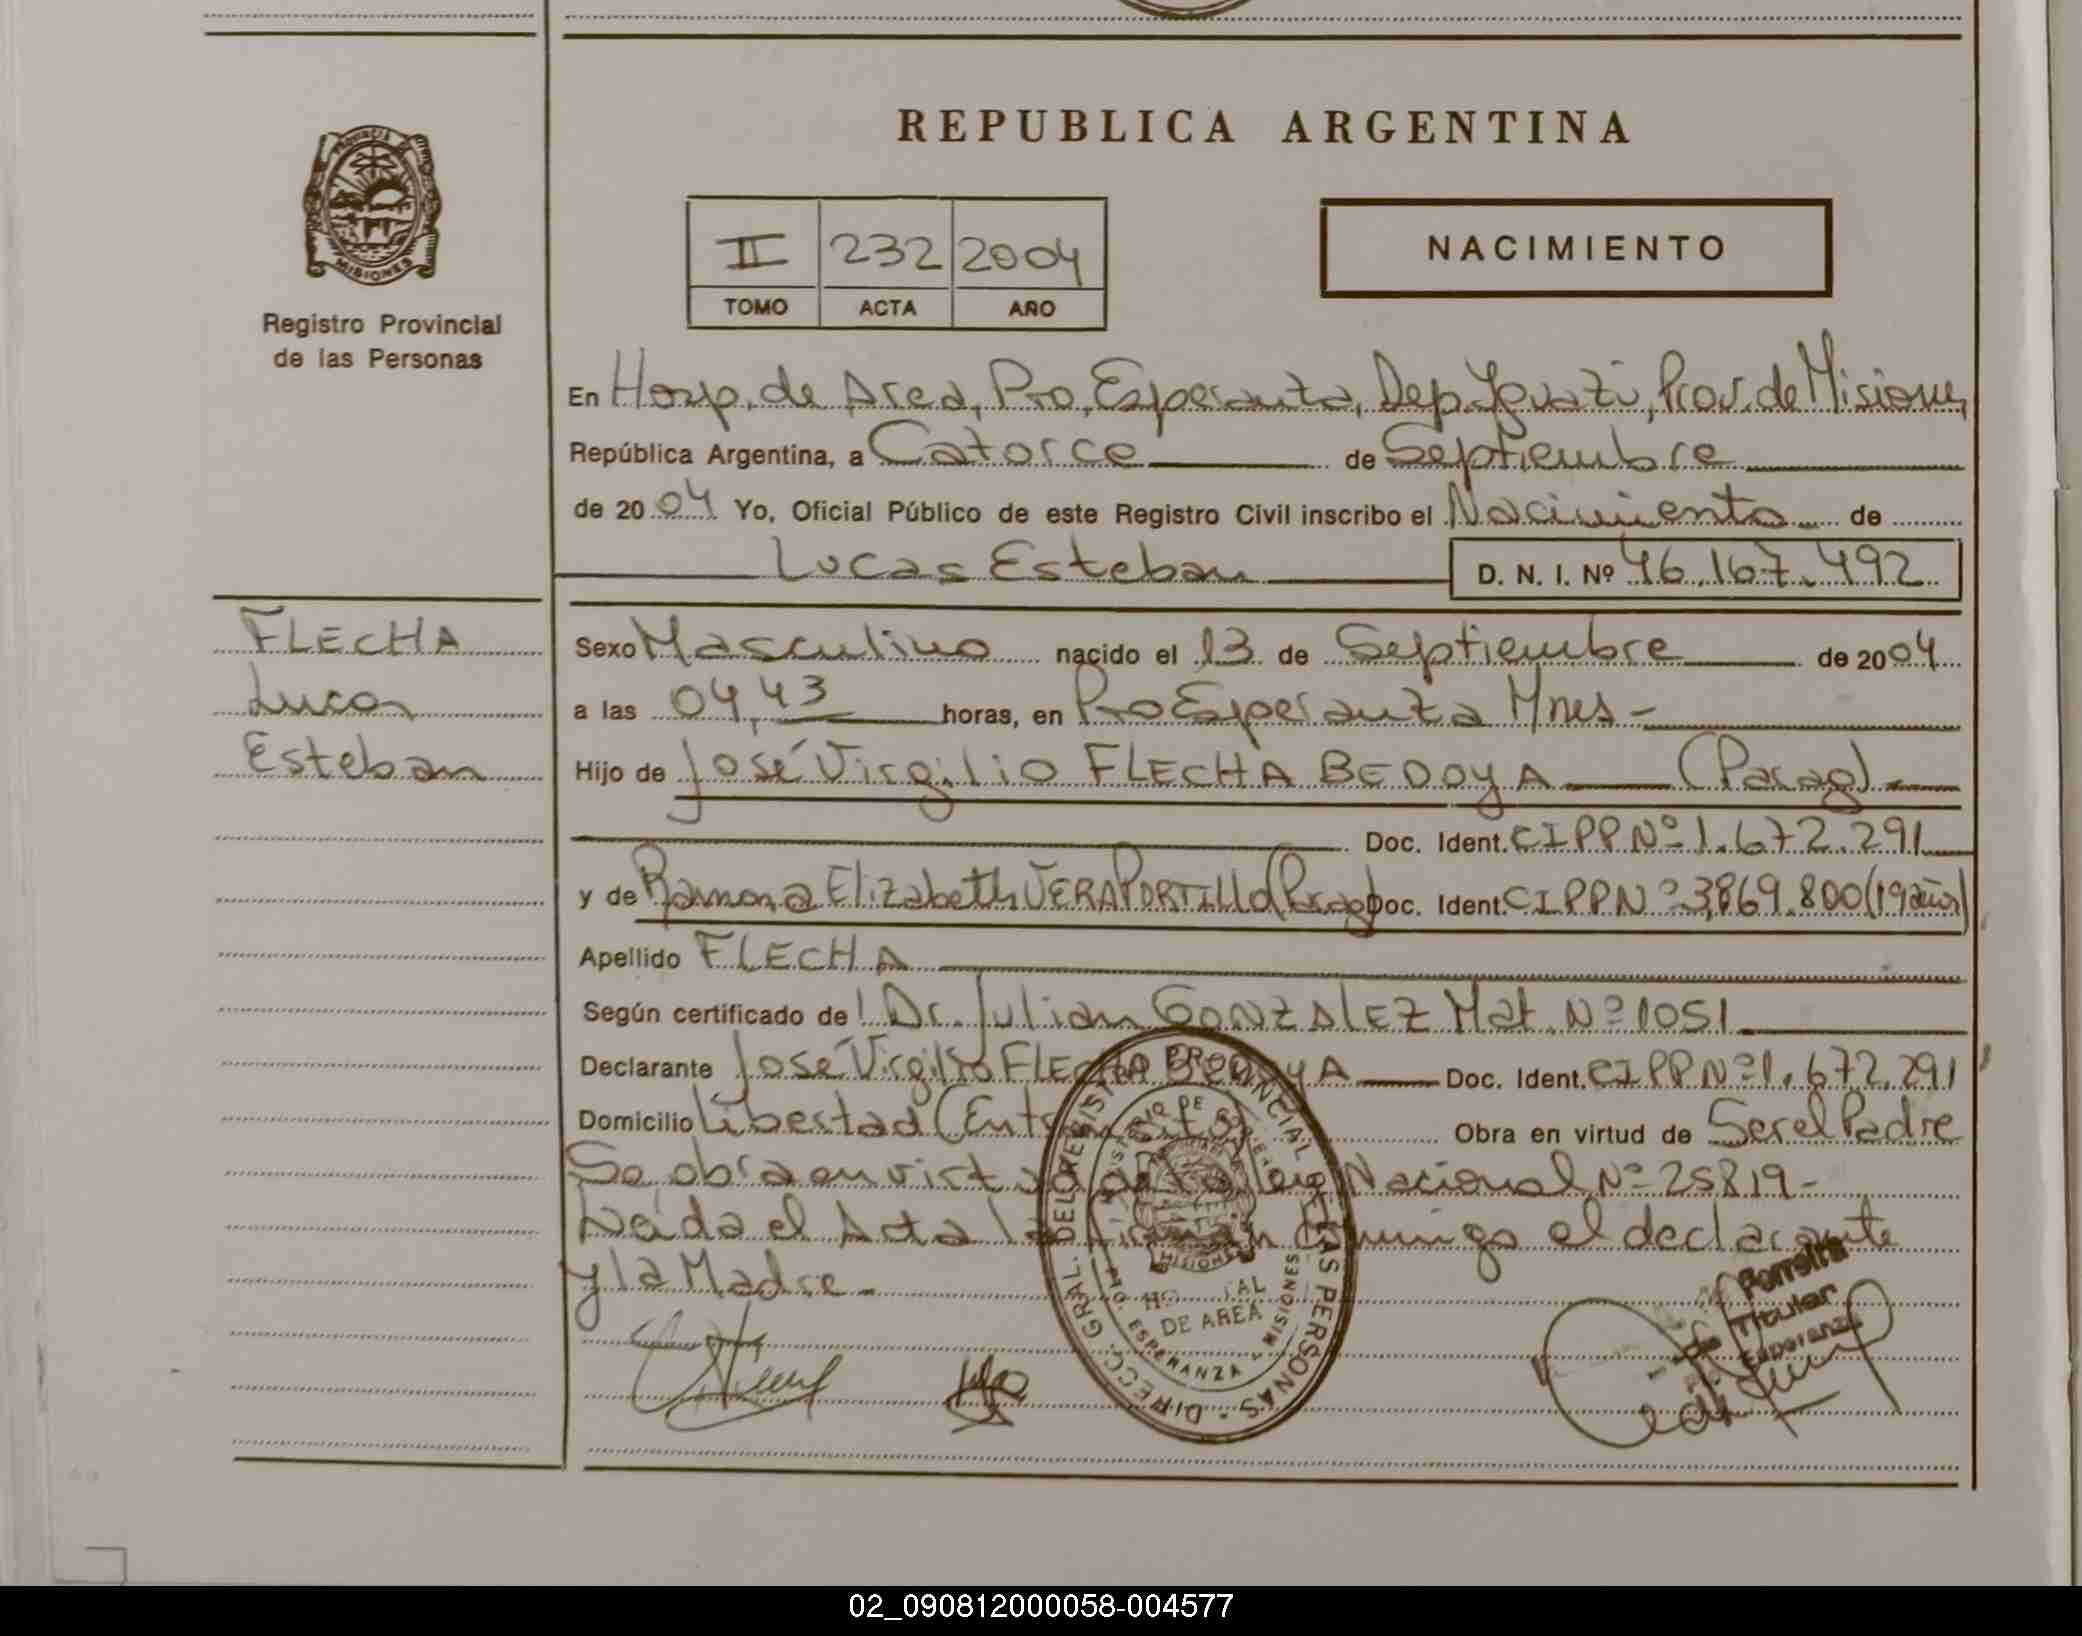 REPUBLICA ARGENTINA
PROVINCIA DE
MISIONES
Registro Provincial
de las Personas
II 232 2004
TOMO ACTA AÑO
NACIMIENTO
En Hosp. de Area, Pto, Esperanza, Dep. Iguazú, Prov. de Misiones
República Argentina, a Catorce de Septiembre
de 2004 Yo, Oficial Público de este Registro Civil inscribo el Nacimiento de
Lucas Esteban D. N. I. Nº 46.167.492
FLECHA
Lucas
Esteban
Sexo Masculino nacido el 13 de Septiembre de 2004
a las 04,43 horas, en Pto Esperanza Mnes-
Hijo de José Virgilio FLECHA BEDOYA (Parag)
Doc. Ident. CIPP Nº 1.672.291
y de Ramona Elizabeth VERA PORTILLO (Parag) Doc. Ident. CIPP Nº 3,869.800 (19 años)
Apellido FLECHA
Según certificado de Dr. Julian GONZALEZ Mat. Nº 1051
Declarante José Virgilio FLECHA BEDOYA Doc. Ident. CIPP Nº 1.672.291
Domicilio Libertad Obra en virtud de Ser el Padre
Se obra en virtud de la ley Nacional Nº 25819-
Leída el Acta la firman conmigo el declarante
y la Madre-
DIRECC. GRAL. DEL REGIST. PROVINCIAL DE LAS PERSONAS
MISIONES
HOSPITAL
DE AREA
ESPERANZA - MISIONES
Ferreira
Titular
Esperanza
02_090812000058-004577